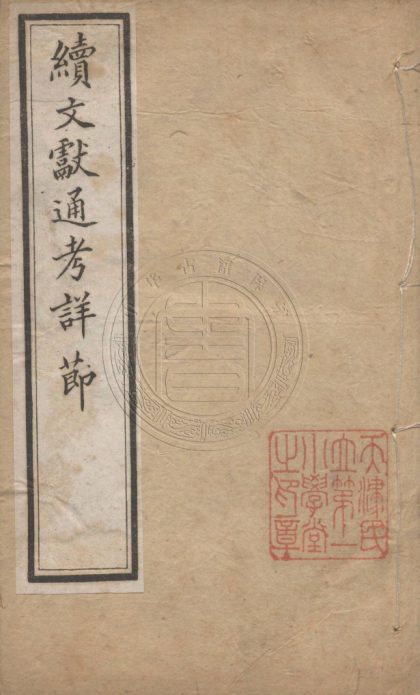 續文獻通考詳節
天津民
立第一
小學堂
之印章